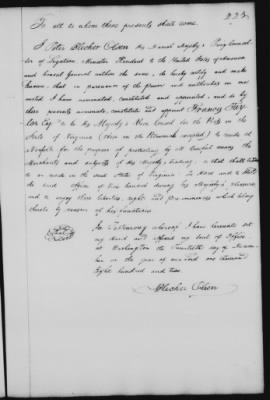 223
To all to whom these presents shall come.
I Peter Blicher Olsen his Danish Majesty's Consul-
lor of Legation, Minister Resident to the United States of America
and Consul General within the same, do hereby certify and make
known, that in pursuance of the power and authorities in me
vested I have nominated, constituted and appointed, and do by
these presents nominate, constitute and appoint Francis
Esq. to be His Majesty's Vice Consul for the Ports in the
State of Virginia
Norfolk for the purpose of protecting by all lawful means the
Merchants and subjects of His Majesty trading, or that shall
or on trade in the said State of Virginia. To Have and to Hold
the said office of Vice Consul during his Majesty's pleasure
and to enjoy those liberties, rights and pre-eminences which belong
thereto by reason of his functions
In Testimony whereof I have hereunto set
my Hand and affixed my Seal of Office
at Washington the Twentieth day of
ber in the year of our Lord one thousand
Eight hundred and two
Seal
Blicher Olsen